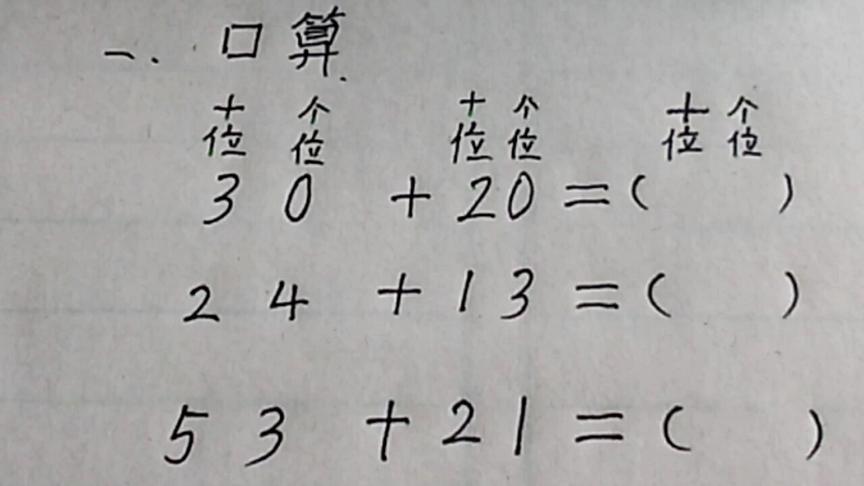 一. 口算.
十位 个位 十位 个位 十位 个位
30 + 20 = ( )
24 + 13 = ( )
53 + 21 = ( )